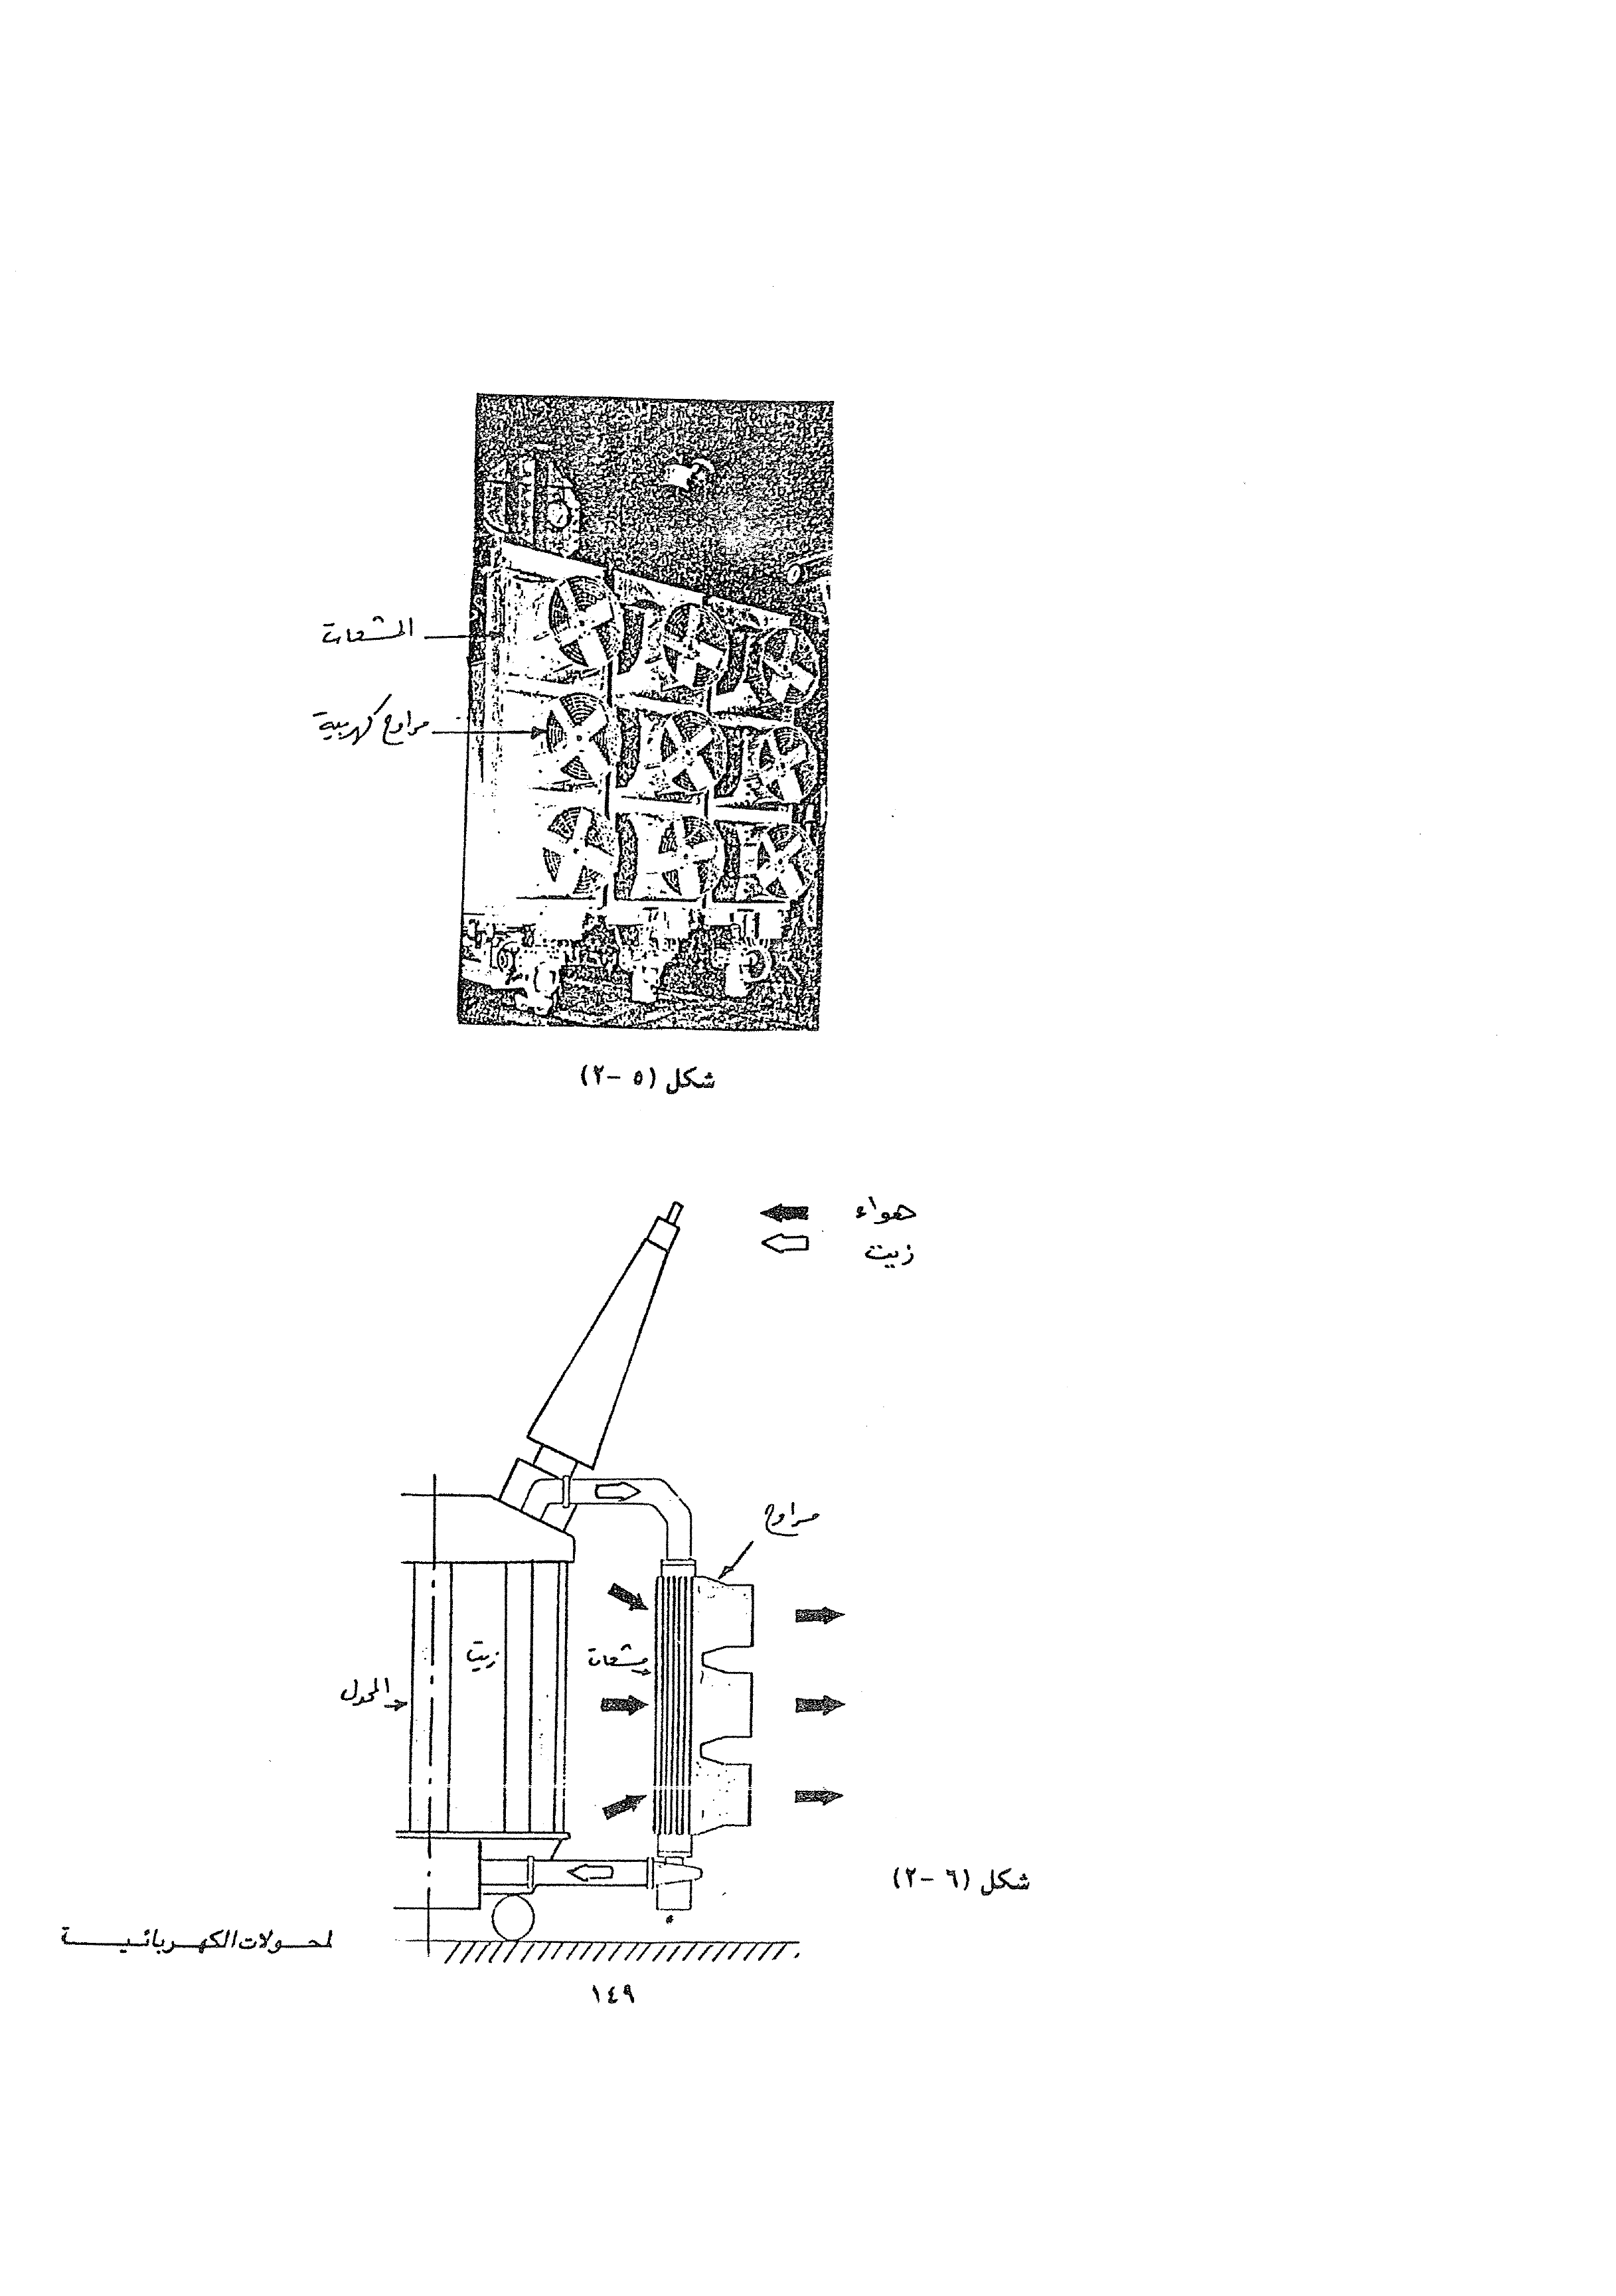 المشعات
مراوح كهربية
شكل (٥ -٢)
هواء
زيت
مراوح
زيت
مشعات
المحول
شكل (٦ -٢)
لمحولات الكهربائية
١٤٩